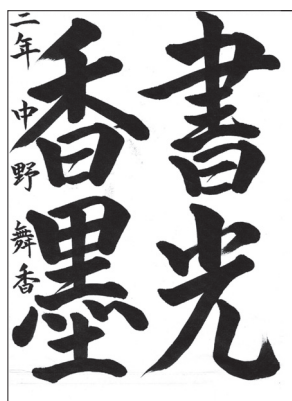 書光
香墨
二年 中野 舞香